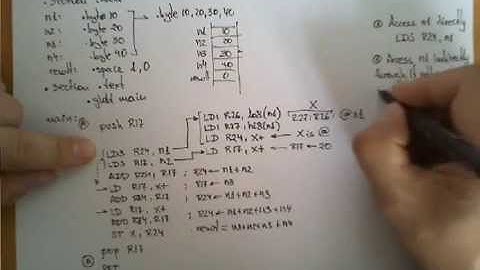 n1: .byte 10
n2: .byte 20
n3: .byte 30
n4: .byte 40
.byte 10,20,30,40
result: .space 1,0
.section .text
.global main
n1 10
n2 20
n3 30
n4 40
result 0
Access n1 directly
LDS R24, n1
Access n1 indirectly
through
main:
push R17
LDI R26, lo8(n1)
LDI R27, hi8(n1)
LD R24, X+ ← X is @
LD R17, X+ ← R17 ← 20
X
R27:R26 @n1
LDS R24, n1
LDS R17, n2
ADD R24, R17 ; R24 ← n1+n2
LD R17, X+ ; R17 ← n3
ADD R24, R17 ; R24 ← n1+n2+n3
LD R17, X+
ADD R24, R17 ; R24 ← n1+n2+n3+n4
ST X, R24 ; result = n1+n2+n3+n4
pop R17
RET